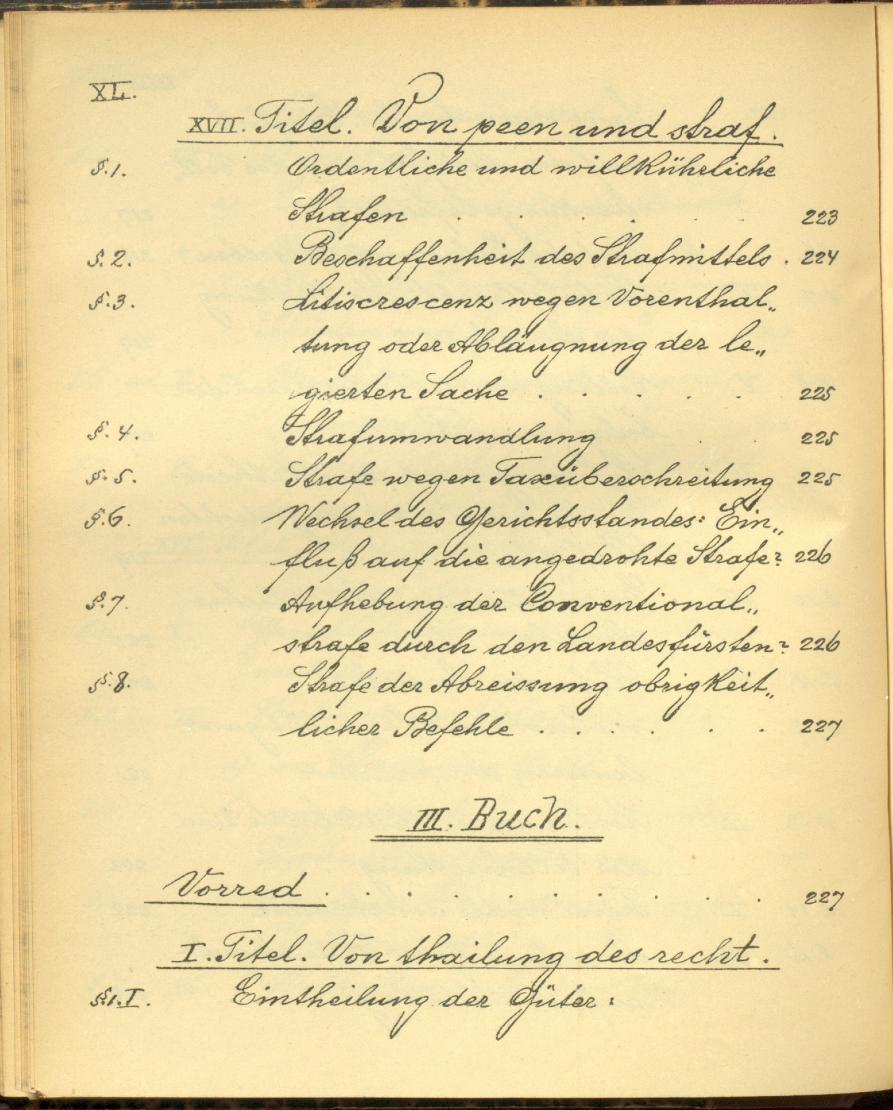 XL.
XVII. Titel. Von peen und straf.
§.1. Ordentliche und willkührliche
Strafen . . . . . 223
§.2. Beschaffenheit des Strafmittels . 224
§.3. Litiscrescenz wegen Vorenthal„
tung oder Abläugnung der le„
gierten Sache . . . . . 225
§.4. Strafumwandlung . . 225
§.5. Strafe wegen Taxüberschreitung 225
§.6. Wechsel des Gerichtsstandes: Ein„
fluß auf die angedrohte Strafe? 226
§.7. Aufhebung der Conventional„
strafe durch den Landesfürsten? 226
§.8. Strafe der Abreissung obrigkeit„
licher Befehle . . . . . 227
III. Buch.
Vorred . . . . . . . . . 227
I. Titel. Von thailung des recht.
§.1.I. Eintheilung der Güter: